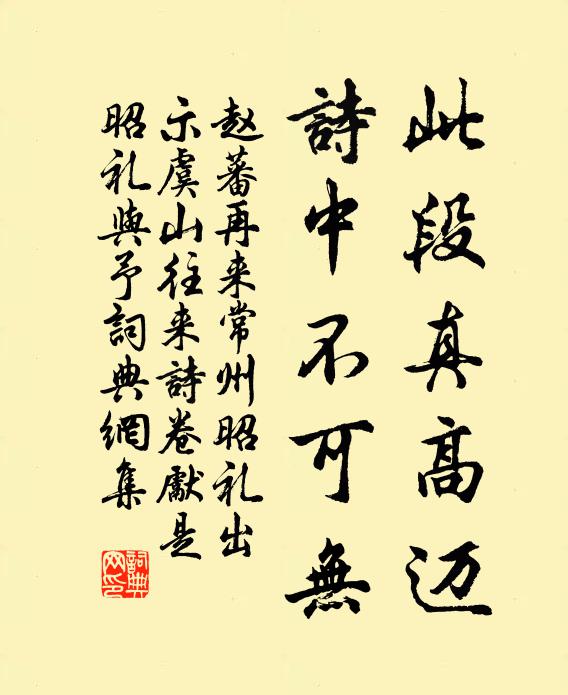 此段真高迈
詩中不可無
赵蕃再来常州昭礼出
示虞山往来詩卷獻是
昭礼與予詞典網集
詞典
网印